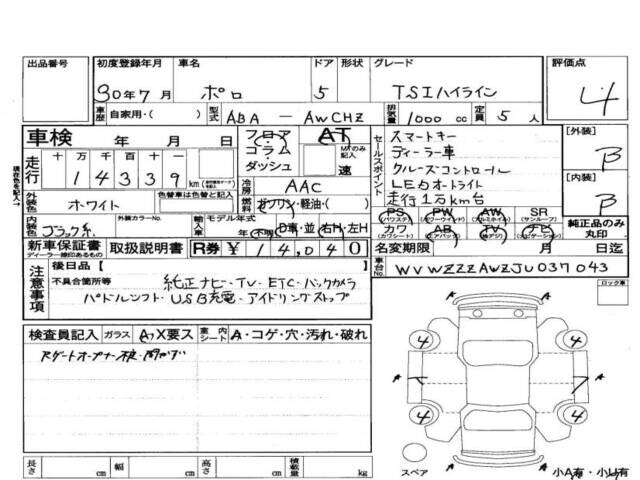 出品番号 初度登録年月 車名 ドア 形状 グレード 評価点
30年7月 ポロ 5 TSIハイライン 4
車歴 自家用・( ) 型式 ABA - AWCHZ 排気量 1000 cc 定員 5 人
車検 年 月 日 フロア コラム ダッシュ AT MTのみ記入 速
走行 十 万 千 百 十 一
1 4 3 3 9 km
冷房 AAC
外装色 ホワイト 色替車は色替と記入 燃料 ガソリン・軽油・( )
内装色 ブラック系 外装カラーNo. 輸入車 モデル年式 (不明) D車・並 右H・左H
新車保証書 ディーラー捺印あるもの 取扱説明書 R券 ¥ 14,040
セールスポイント
スマートキー
ディーラー車
クルーズコントロール
LEDオートライト
走行1万km台
PS (パワステ) PW (パワーウィンド) AW (アルミホイル) SR (サンルーフ)
カワ (カワシート) AB (エアバッグ) TV ナビ 純正品のみ丸印
[外装] B
[内装] B
名変期限 月 日迄
車台No. WVWZZZAWZJU037043
注意事項
後日品【
不具合箇所等 純正ナビ・TV・ETC・バックカメラ
パドルシフト・USB充電・アイドリングストップ
ロック車
検査員記入 ガラス A・X要ス 室内シート A・コゲ・穴・汚れ・破れ
A A
4 4
A A
4 4
A A
スペア 小A有・小U有
長さ cm 幅 cm 高さ cm 積載量 kg
現在色を記入